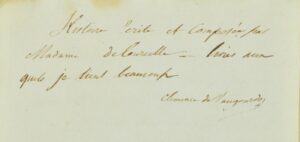 Histoire écrite et composée par
Madame de Courcelle — livres aux
quels je tiens beaucoup
Clémence de